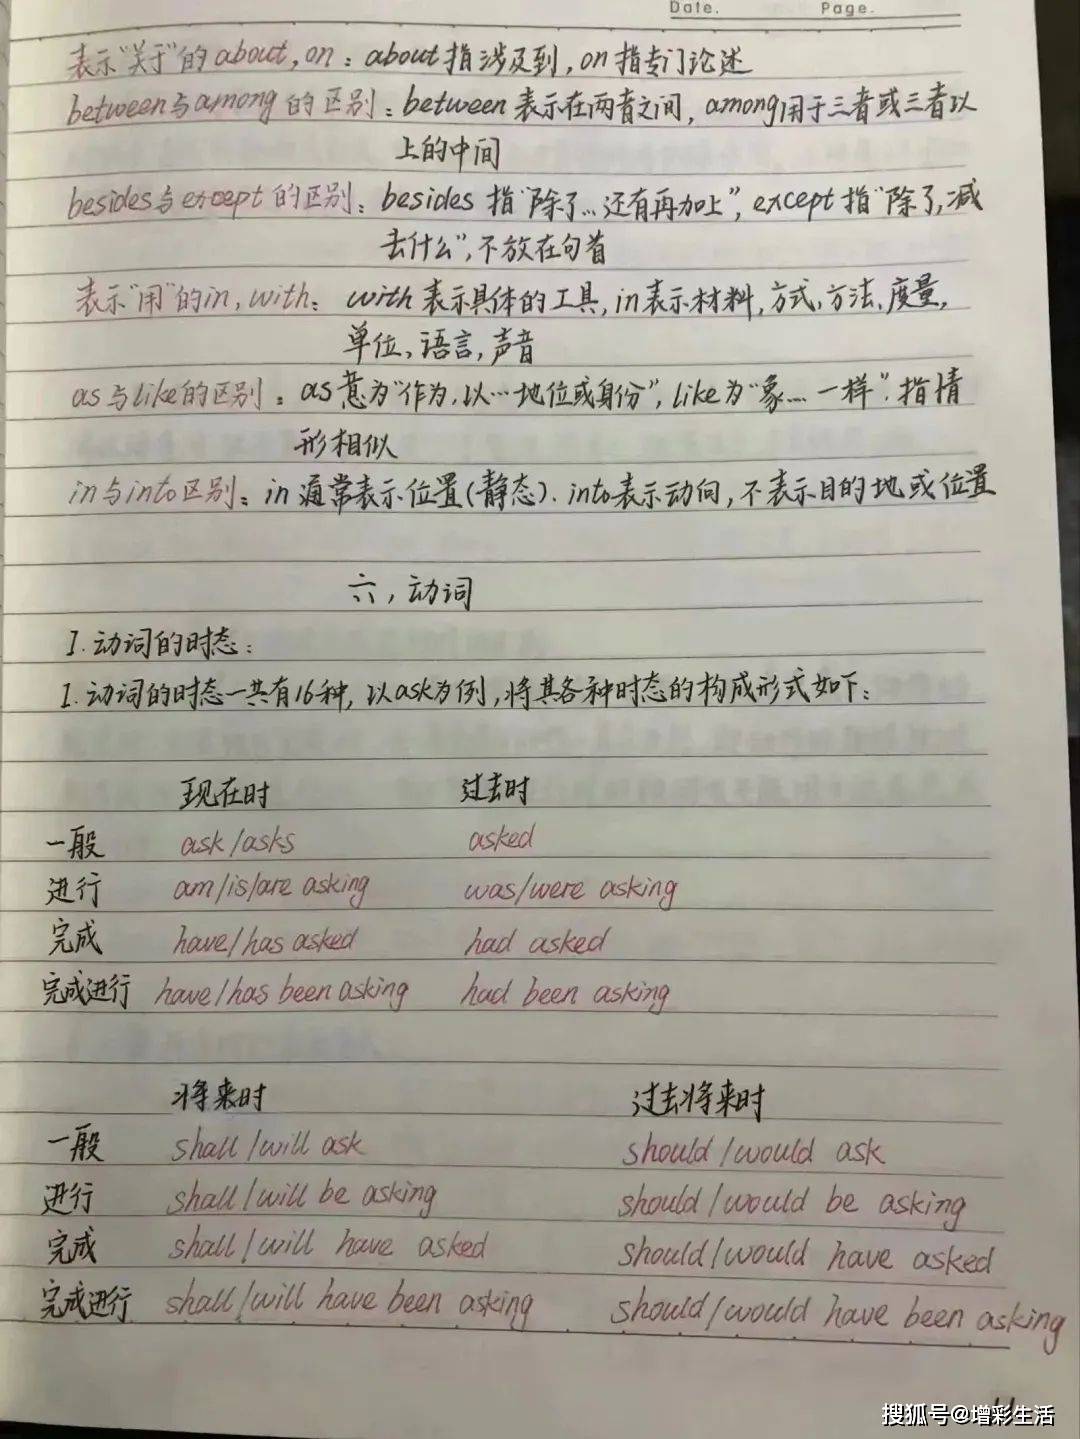 Date. Page.
表示"关于"的about,on：about指涉及到,on指专门论述
between与among的区别：between表示在两者之间,among用于三者或三者以
上的中间
besides与except的区别：besides指"除了…还有再加上",except指"除了,减
去什么",不放在句首
表示"用"的in,with：with表示具体的工具,in表示材料,方式,方法,度量,
单位,语言,声音
as与like的区别：as意为"作为,以…地位或身份",like为"象…一样",指情
形相似
in与into区别：in通常表示位置(静态).into表示动向,不表示目的地或位置
六,动词
I.动词的时态：
1.动词的时态一共有16种,以ask为例,将其各种时态的构成形式如下：
现在时 过去时
一般 ask/asks asked
进行 am/is/are asking was/were asking
完成 have/has asked had asked
完成进行 have/has been asking had been asking
将来时 过去将来时
一般 shall/will ask should/would ask
进行 shall/will be asking should/would be asking
完成 shall/will have asked should/would have asked
完成进行 shall/will have been asking should/would have been asking
搜狐号@增彩生活